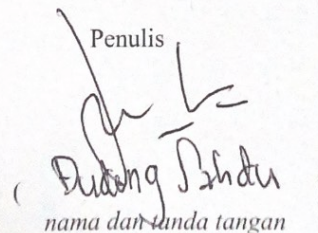 Penulis
( Dudung
nama dan tanda tangan